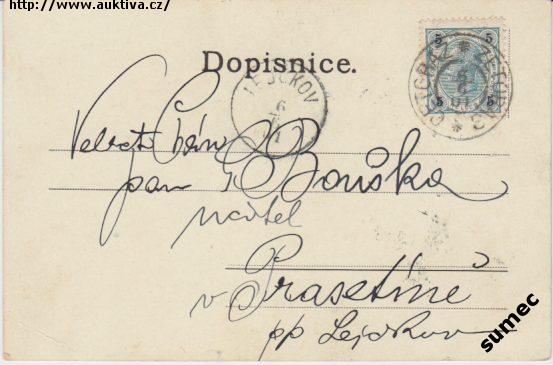 http://www.auktiva.cz/
Dopisnice.
5 5
5 5
LEJČKOV
Velect. Pán
pan G Bouška
učitel
v Prasetíně
pp Lejčkov
sumec